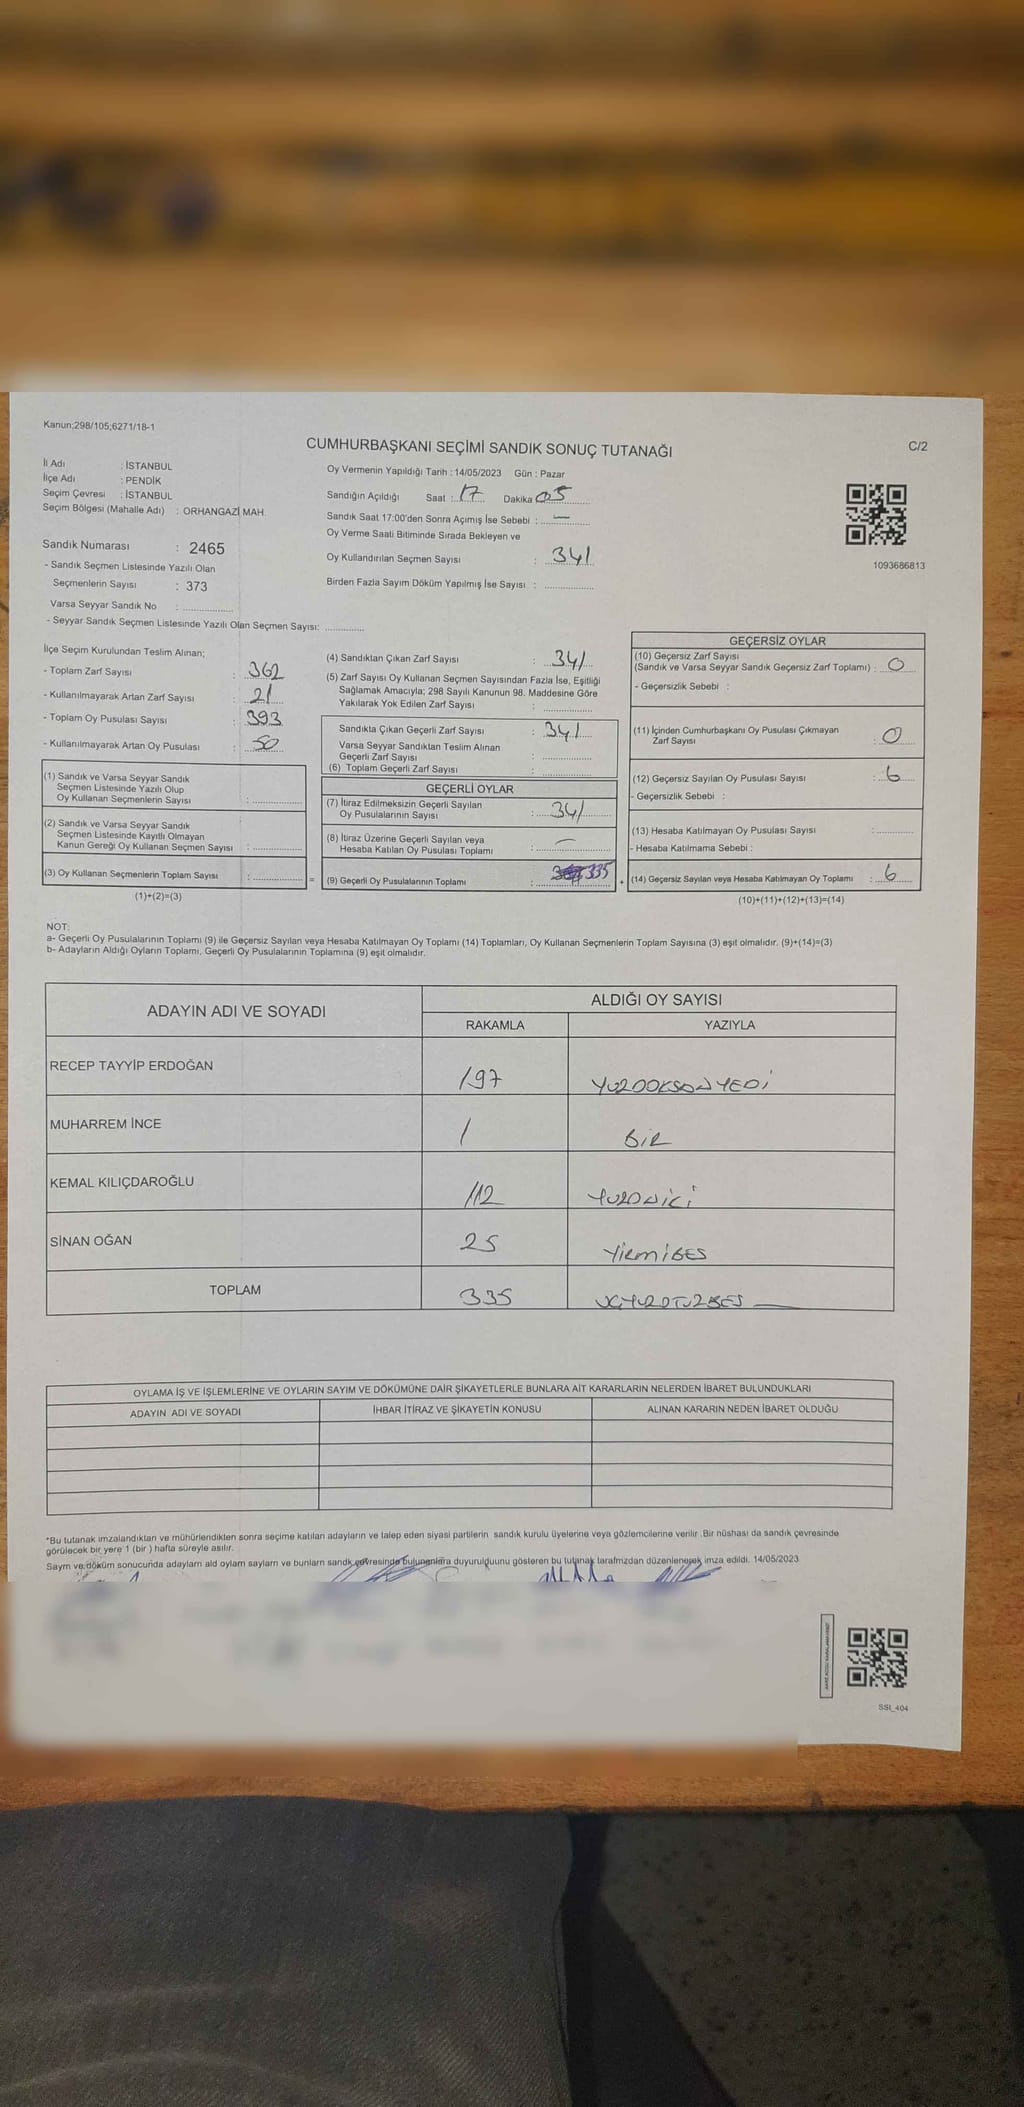 Kanun;298/105;6271/18-1
CUMHURBAŞKANI SEÇİMİ SANDIK SONUÇ TUTANAĞI
C/2
İl Adı : İSTANBUL
İlçe Adı : PENDİK
Seçim Çevresi : İSTANBUL
Seçim Bölgesi (Mahalle Adı) : ORHANGAZİ MAH.
Oy Vermenin Yapıldığı Tarih : 14/05/2023 Gün : Pazar
Sandığın Açıldığı Saat : 17 Dakika 05
Sandık Saat 17:00'den Sonra Açımış İse Sebebi : —
Oy Verme Saati Bitiminde Sırada Bekleyen ve
Oy Kullandırılan Seçmen Sayısı : 341
Birden Fazla Sayım Döküm Yapılmış İse Sayısı :
1093686813
Sandık Numarası : 2465
- Sandık Seçmen Listesinde Yazılı Olan
Seçmenlerin Sayısı : 373
Varsa Seyyar Sandık No :
- Seyyar Sandık Seçmen Listesinde Yazılı Olan Seçmen Sayısı:
İlçe Seçim Kurulundan Teslim Alınan;
- Toplam Zarf Sayısı : 362
- Kullanılmayarak Artan Zarf Sayısı : 21
- Toplam Oy Pusulası Sayısı : 393
- Kullanılmayarak Artan Oy Pusulası : 50
(1) Sandık ve Varsa Seyyar Sandık
Seçmen Listesinde Yazılı Olup
Oy Kullanan Seçmenlerin Sayısı :
(2) Sandık ve Varsa Seyyar Sandık
Seçmen Listesinde Kayıtlı Olmayan
Kanun Gereği Oy Kullanan Seçmen Sayısı :
(3) Oy Kullanan Seçmenlerin Toplam Sayısı : =
(1)+(2)=(3)
(4) Sandıktan Çıkan Zarf Sayısı : 341
(5) Zarf Sayısı Oy Kullanan Seçmen Sayısından Fazla İse, Eşitliği
Sağlamak Amacıyla; 298 Sayılı Kanunun 98. Maddesine Göre
Yakılarak Yok Edilen Zarf Sayısı :
Sandıkta Çıkan Geçerli Zarf Sayısı : 341
Varsa Seyyar Sandıktan Teslim Alınan
Geçerli Zarf Sayısı :
(6) Toplam Geçerli Zarf Sayısı :
GEÇERLİ OYLAR
(7) İtiraz Edilmeksizin Geçerli Sayılan
Oy Pusulalarının Sayısı : 341
(8) İtiraz Üzerine Geçerli Sayılan veya
Hesaba Katılan Oy Pusulası Toplamı : —
(9) Geçerli Oy Pusulalarının Toplamı : 335 +
GEÇERSİZ OYLAR
(10) Geçersiz Zarf Sayısı
(Sandık ve Varsa Seyyar Sandık Geçersiz Zarf Toplamı) : 0
- Geçersizlik Sebebi :
(11) İçinden Cumhurbaşkanı Oy Pusulası Çıkmayan
Zarf Sayısı : 0
(12) Geçersiz Sayılan Oy Pusulası Sayısı : 6
- Geçersizlik Sebebi :
(13) Hesaba Katılmayan Oy Pusulası Sayısı :
- Hesaba Katılmama Sebebi :
(14) Geçersiz Sayılan veya Hesaba Katılmayan Oy Toplamı : 6
(10)+(11)+(12)+(13)=(14)
NOT:
a- Geçerli Oy Pusulalarının Toplamı (9) ile Geçersiz Sayılan veya Hesaba Katılmayan Oy Toplamı (14) Toplamları, Oy Kullanan Seçmenlerin Toplam Sayısına (3) eşit olmalıdır. (9)+(14)=(3)
b- Adayların Aldığı Oyların Toplamı, Geçerli Oy Pusulalarının Toplamına (9) eşit olmalıdır.
ADAYIN ADI VE SOYADI
ALDIĞI OY SAYISI
RAKAMLA YAZIYLA
RECEP TAYYİP ERDOĞAN 197 YUZDOKSANYEDİ
MUHARREM İNCE 1 BİR
KEMAL KILIÇDAROĞLU 112 YUZONİKİ
SİNAN OĞAN 25 YİRMİBES
TOPLAM 335 UCYUZOTUZBES
OYLAMA İŞ VE İŞLEMLERİNE VE OYLARIN SAYIM VE DÖKÜMÜNE DAİR ŞİKAYETLERLE BUNLARA AİT KARARLARIN NELERDEN İBARET BULUNDUKLARI
ADAYIN ADI VE SOYADI İHBAR İTİRAZ VE ŞİKAYETİN KONUSU ALINAN KARARIN NEDEN İBARET OLDUĞU
*Bu tutanak imzalandıktan ve mühürlendikten sonra seçime katılan adayların ve talep eden siyasi partilerin sandık kurulu üyelerine veya gözlemcilerine verilir .Bir nüshası da sandık çevresinde
görülecek bir yere 1 (bir ) hafta süreyle asılır.
Sayım ve döküm sonucunda adayların ald oyların sayların ve bunların sandk çevresinde bulunanlara duyurulduunu gösteren bu tutanak tarafmzdan düzenlenerek imza edildi. 14/05/2023
SSI_404